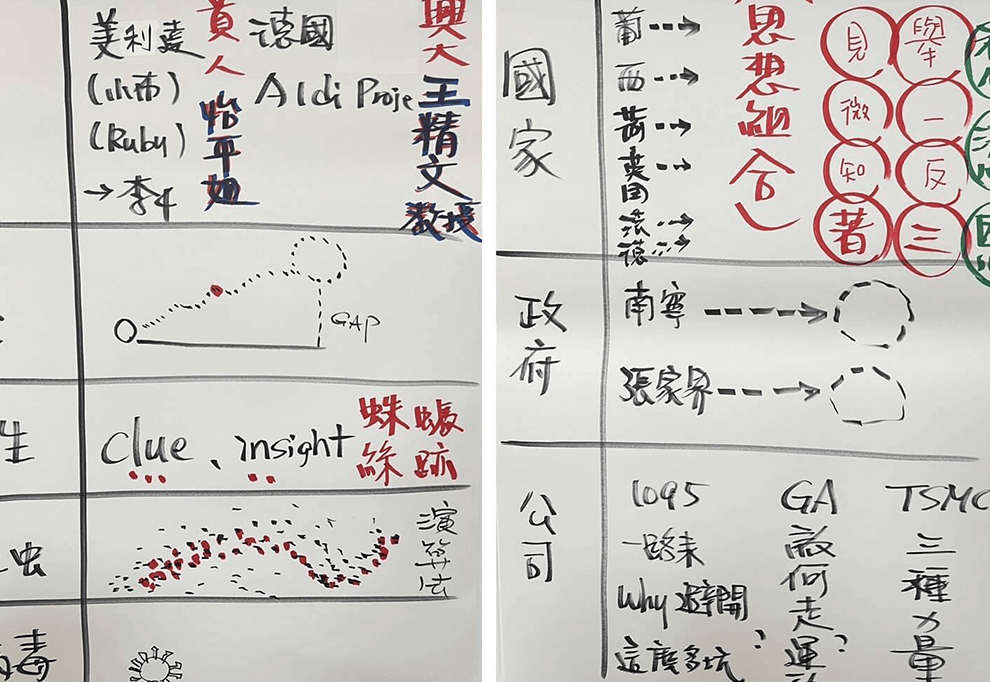 美利堅
(小布)
(Ruby)
→李牛
貴人
怡平姐
德國
Aldi Proje
興大
王精文
教授
GAP
生
clue、insight
蛛絲
蜘跡
虫
演算法
毒
國家
葡
西
荷
英國
法
德
思想組合)
見微知著
舉一反三
政府
南寧
張家界
公司
1095
一路來
Why 避開
這麼多坑?
GA
敵何走運?
TSMC
三種力量